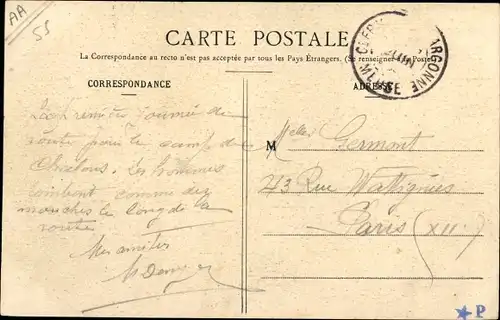 AA
55
CARTE POSTALE
La Correspondance au recto n'est pas acceptée par tous les Pays Étrangers. (Se renseigner à la Poste)
CORRESPONDANCE
La première journée de
route pour le camp de
Chalons. Les hommes
tombent comme des
mouches le long de la
route
Mes amitiés
ADRESSE
M elles Germont
43 Rue Wattignies
Paris (XII)
ARGONNE
MEUSE
P